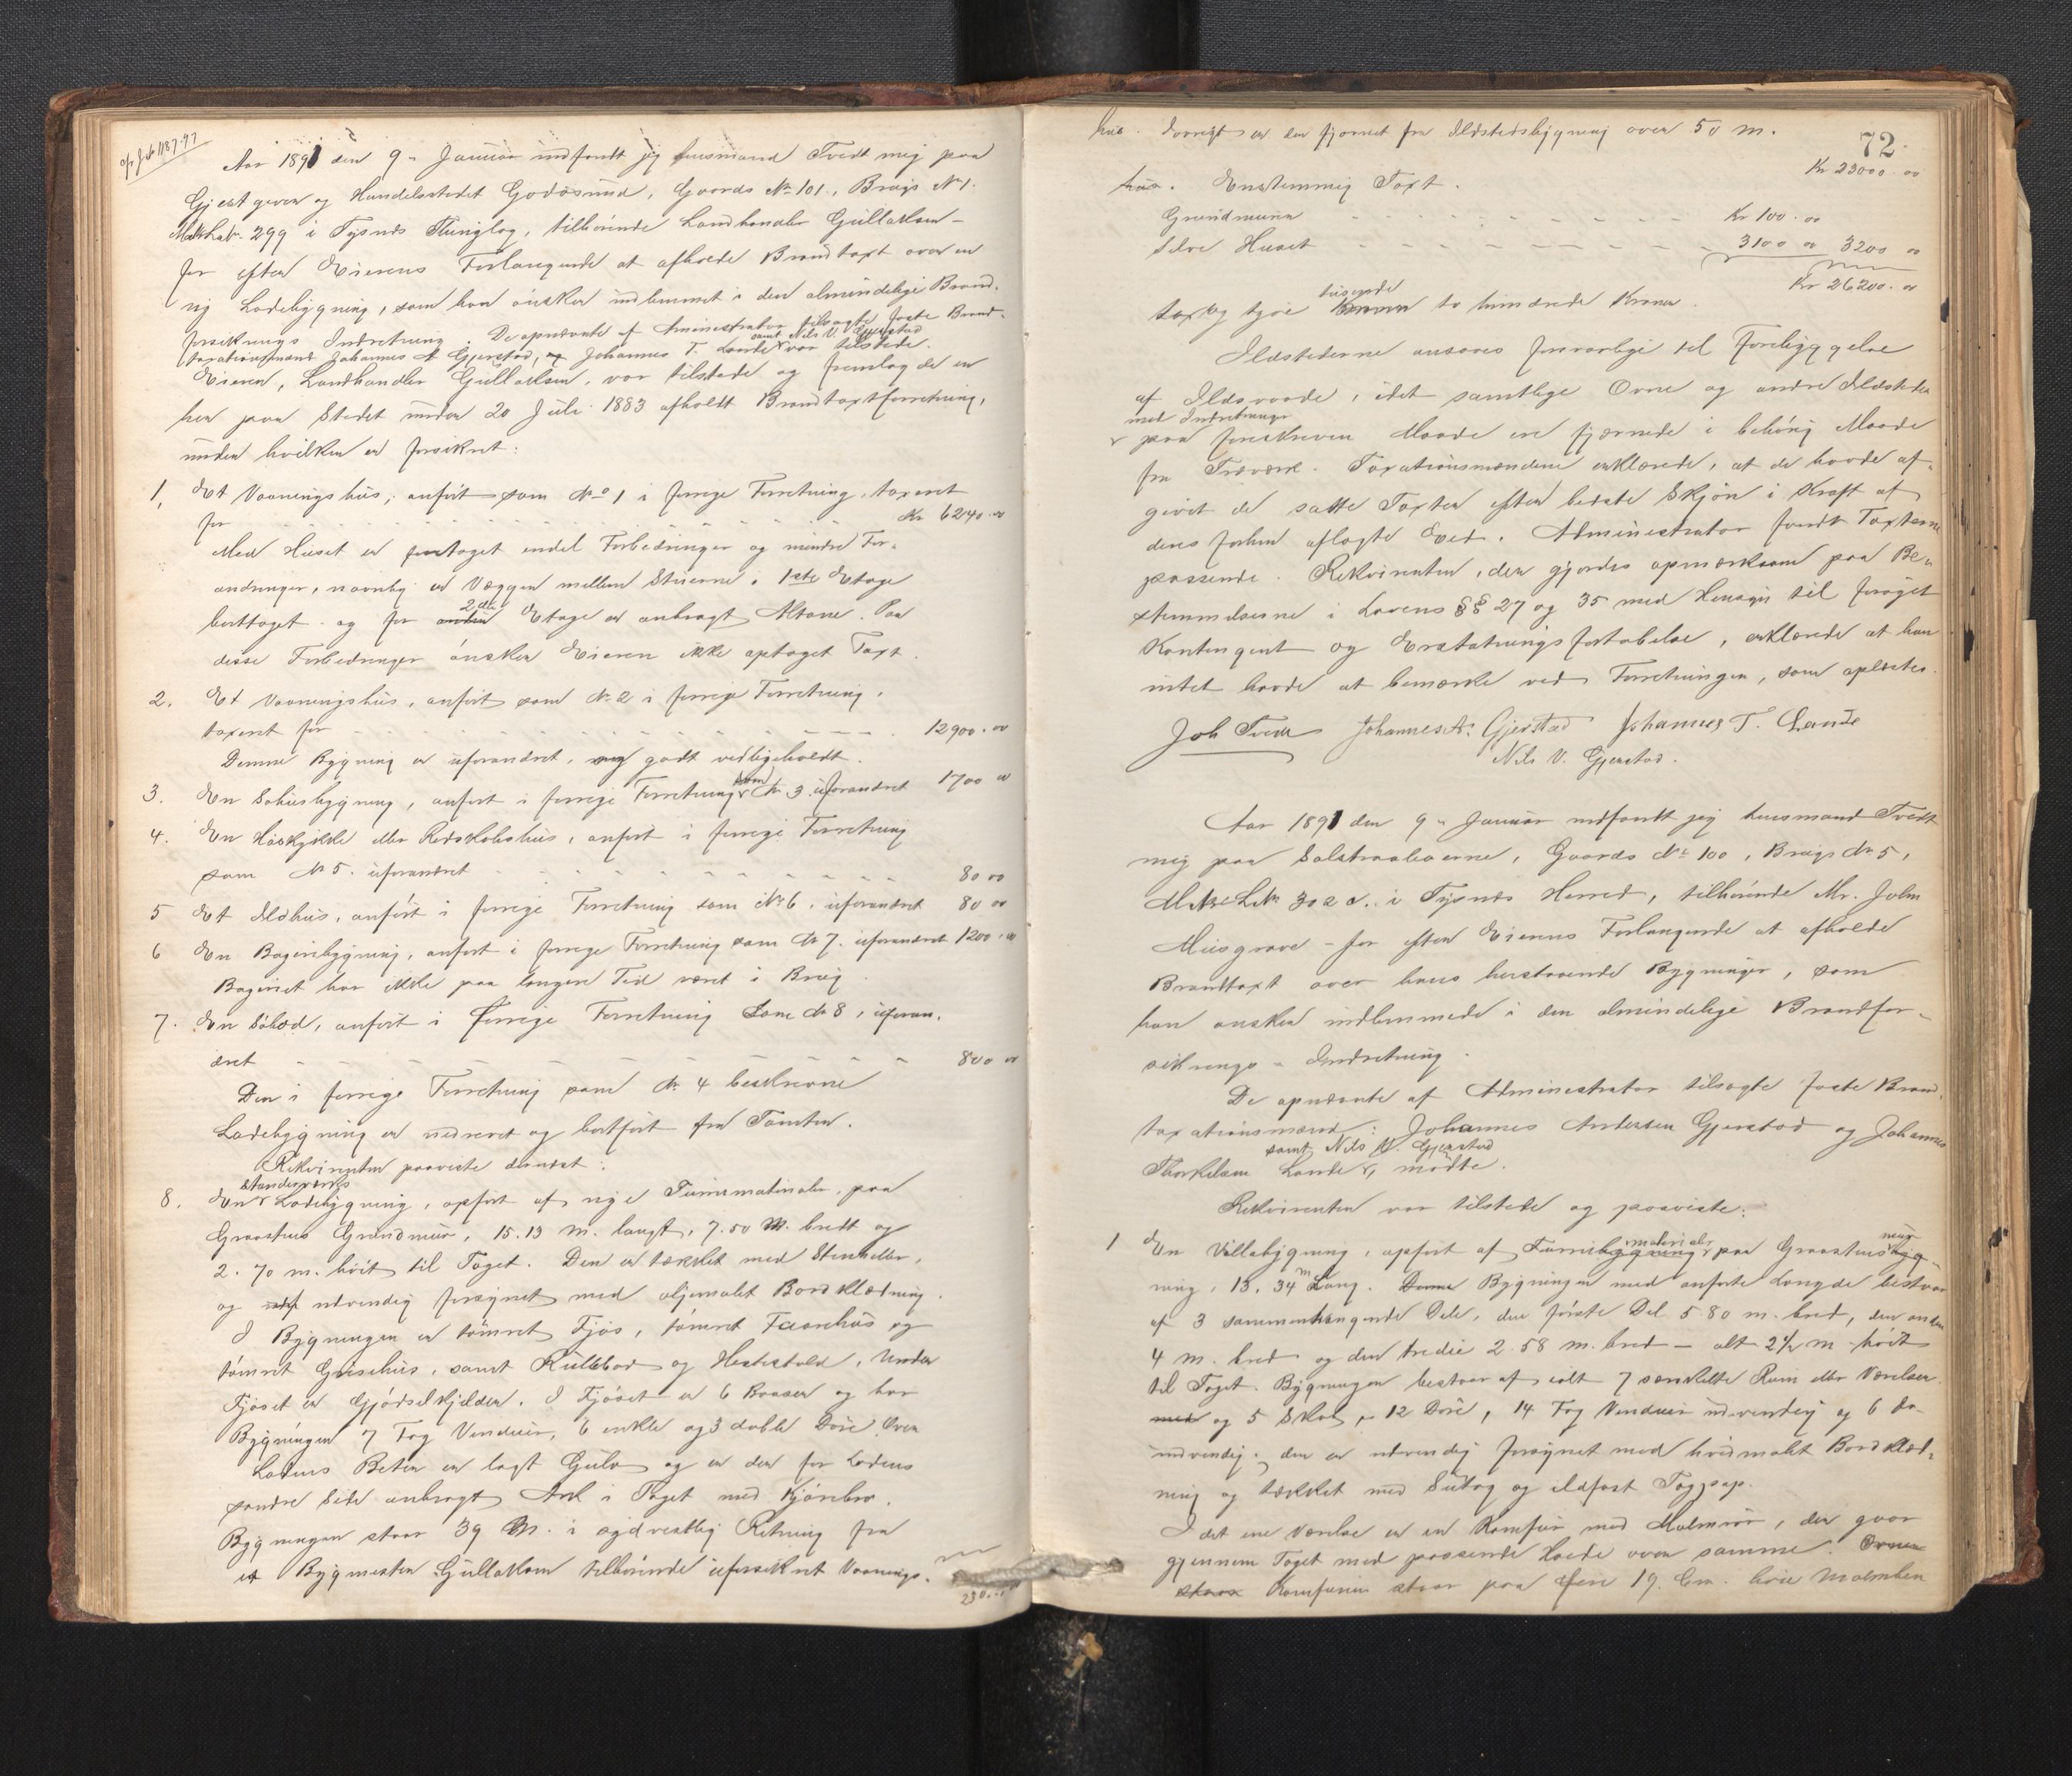 Aar 1891 den 9de Januar indfandt jeg Lensmand Tvedt mig paa
Gjestgiver og Handelsstedet Godøsund, Gaards No 101, Brugs No 1.
299 i Tysnæs Thinglag, tilhørende Landhandler Gullaksen –
for efter Eierens Forlangende at afholde Brandtaxt over en
ny Ladebygning, som han ønsker indlemmet i den almindelige Brand-
forsikrings Indretning. De opnævnte af Aministrator tilsagte faste Brand-
samt Nils V. Gjerstad
taxationsmænd Johannes A Gjerstad, Johannes T. Lande var tilstede.
Eieren, Landhandler Gullaksen, var tilstede og fremlagde en
her paa Stedet under 20 Juli 1883 afholdt Brandtaxtforretning,
under hvilken er forsikret:
1, Et Vaaningshus, anført som No 1 i forrige Forretning, taxeret
for Kr 6240.00
Med Huset er foretaget endel Forbedringer og mindre For-
andringer, navnlig er Væggen mellem Stuerne i 1ste Etage
2den
borttaget og for anden Etage er anbragt Altane. Paa
disse Forbedringer ønsker Eieren ikke optaget Taxt.
2. Et Vaaningshus, anført som No 2 i forrige Forretning,
taxeret for 12900.00
Denne Bygning er uforandret, og godt vedligeholdt.
som
3. En Søhusbygning, anført i forrige Forretning No 3 uforandret 1700 00
4. En eller Redskabshus, anført i forrige Forretning
som No 5. uforandret 80 00
5 Et Ildhus, anført i forrige Forretning som No 6, uforandret 80 00
6 En Bageribygning, anført i forrige Forretning som No 7. uforandret 1200.00
Bageriet har ikke paa længere Tid været i Brug.
7. En Søbod, anført i forrige Forretning Som No 8, uforan-
dret 800 00
Den i forrige Forretning som No 4 beskrevne
Ladebygning er nedrevet og bortført fra Tomten.
Rekvirenten paaviste dernæst:
Standerværks
8. En Ladebygning, opført af nye Furumaterialer, paa
Graastens Grundmur, 15.13 M. langt, 7.50 M. bredt og
2.70 m. høit til Taget. Den er tækket med Stenheller,
og udvendig forsynet med oljemalet Bordklædning.
I Bygningen er tømret Fjøs, tømret Faarehus og
tømret Grisehus, samt Kullebod og Hestestald, under
Fjøset er Gjødselkjelder. I Fjøset er 6 Baaser og har
Bygningen 7 Fag Vinduer, 6 enkle og 3 doble Døre. Over
Ladens Beter er lagt Gulv og er der for Ladens
søndre Side anbragt Ark i Taget med Kjørebro.
Bygningen staar 39 M. i sydvestlig Retning fra
et Bygmester Gullaksen tilhørende uforsikret Vaanings-
hus. Forøvrigt er den fjernet fra Ildstedsbygning over 50 m.
72.
Kr 23000.00
hus. Enstemmig Taxt.
Grundmuren Kr 100.00
Selve Huset 3100 00 3200 00
Kr 26200.00
tusende
sex og tyve Kroner to hundrede Kroner.
Ildstederne ansaaes forsvarlige til Forebyggelse
af Ildsvaade, idet samtlige Ovne og andre Ildsteder
med Indretninger
paa foreskreven Maade ere fjernede i behørig Maade
fra Træværk. Taxationsmændene erklærede, at de havde af-
givet de satte Taxter efter bedste Skjøn i Kraft af
deres forhen aflagte Eed. Administrator fandt Taxterne
passende. Rekvirenten, der gjordes opmærksom paa Be-
stemmelserne i Lovens §§ 27 og 35 med Hensyn til forøget
Kontingent og Erstatnings fortabelse, erklærede at han
intet havde at bemærke ved Forretningen, som oplæstes.
Joh Tvedt Johannes A: Gjerstad Johannes T. Lande
Nils V. Gjerstad.
Aar 1891 den 9de Januar indfandt jeg Lensmand Tvedt
mig paa Gaards No 100, Brugs No 5,
302 i Tysnæs Herred, tilhørende Mr. John
Musgrave – for efter Eierens Forlangende at afholde
Brandtaxt over hans herstaaende Bygninger, som
han ønsker indlemmede i den almindelige Brandfor-
sikrings – Indretning.
De opnævnte af Administrator tilsagte faste Brand-
taxationsmænd: Johannes Andersen Gjerstad og Johannes
samt Nils V. Gjerstad
Thorkelsen Lande, mødte.
Rekvirenten var tilstede og paaviste:
materialer mur
1 En Villabygning, opført af Furubygning paa Graastens
ning, 13.34 m Lang. Denne Bygningen med anførte Længde bestaar
af 3 sammenhængende Dele, den første Del 5.80 m. bred, den anden
4 m. bred og den tredie 2.58 m. bred – alt 2½ m høit
til Taget. Bygningen bestaar af ialt 7 særskilte Rum eller Værelser
med og 5 Skab, 12 Døre, 14 Fag Vinduer udvendig og 6 do
indvendig; den er udvendig forsynet med hvidmalt Bordklæd-
ning og tækket med Sutag og ildfast Tagpap.
I det ene Værelse er en Komfur med Malmrør, der gaar
gjennem Taget med passende Hætte over samme. Ovnen
staar Komfuren staar paa fire 19 Cm. høie Malmben